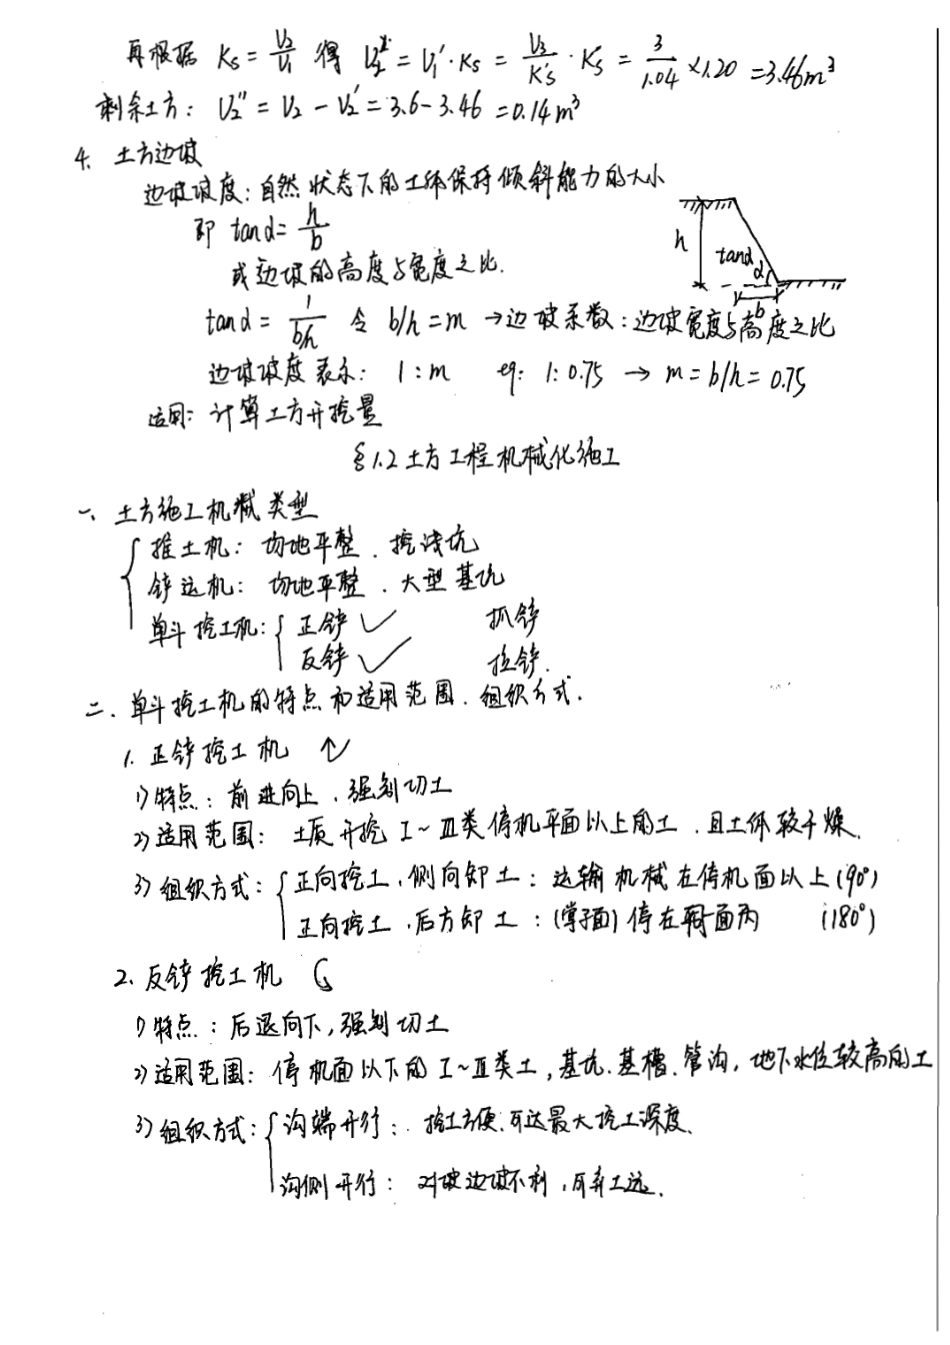 再根据 Ks = V2/V1 得 V2' = V1'·Ks = V3/K's · Ks = 3/1.04 ×1.20 =3.46m³
剩余土方: V2'' = V2 - V2' = 3.6-3.46 =0.14m³
4. 土方边坡
边坡坡度:自然状态下的土体保持倾斜能力的大小
即 tanα= h/b
或边坡的高度与宽度之比.
h tanα α b
tanα = 1/b/h 令 b/h=m →边坡系数:边坡宽度与高度之比
边坡坡度表示: 1:m eg: 1:0.75 → m=b/h=0.75
适用: 计算土方开挖量
§1.2 土方工程机械化施工
一、土方施工机械类型
推土机: 场地平整、挖浅坑
铲运机: 场地平整、大型基坑
单斗挖土机: 正铲 ✓ 抓铲
反铲 ✓ 拉铲.
二、单斗挖土机的特点和适用范围、组织方式.
1. 正铲挖土机
1)特点: 前进向上、强制切土
2)适用范围: 土质开挖 I~Ⅲ类停机平面以上的土、且土体较干燥.
3)组织方式: 正向挖土、侧向卸土: 运输机械在停机面以上(90°)
正向挖土、后方卸土:(掌子面)停在 面内 (180°)
2. 反铲挖土机
1)特点: 后退向下,强制切土
2)适用范围: 停机面以下的 I~Ⅱ类土,基坑.基槽.管沟,地下水位较高的土
3)组织方式: 沟端开行: 挖土方便.可达最大挖土深度.
沟侧开行: 对坡边坡不利,可弃土远.